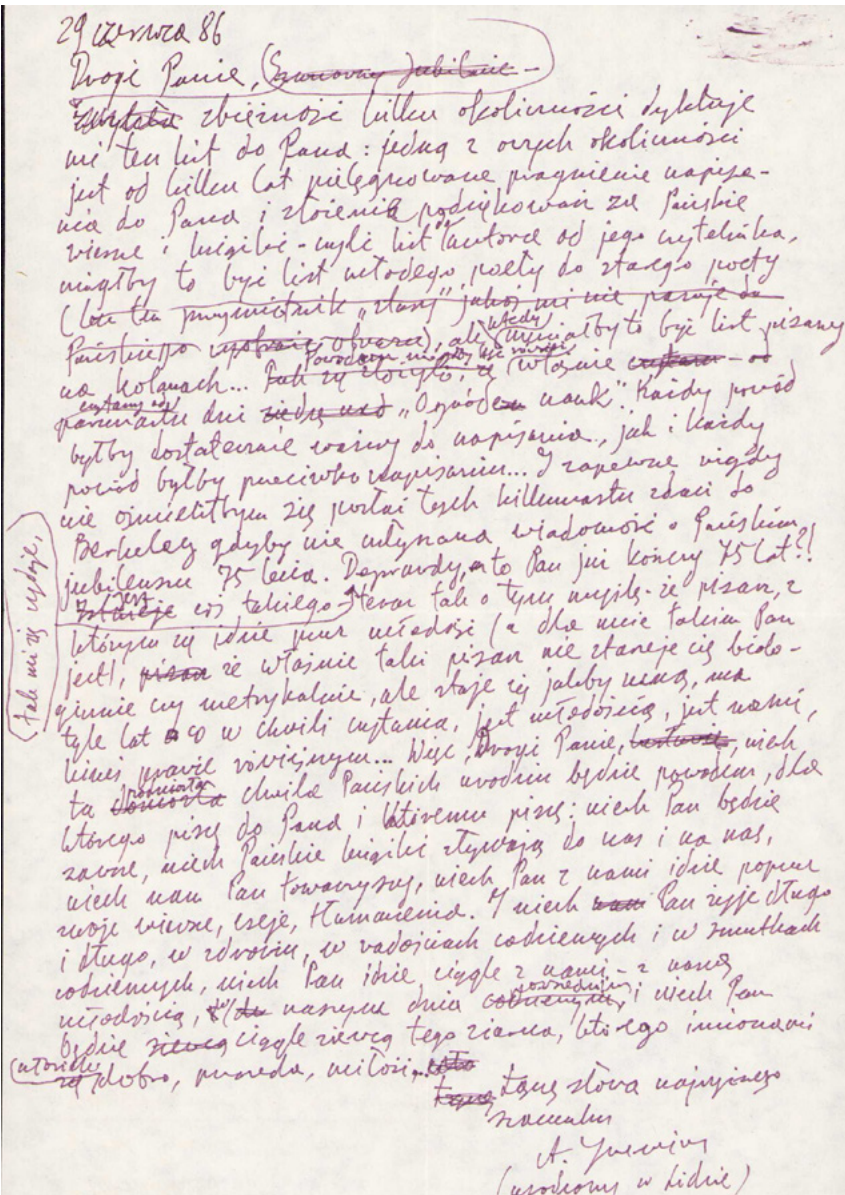 29 czerwca 86
Drogi Panie, (Szanowny Jubilacie –
Zwykła zbieżność kilku okoliczności dyktuje
mi ten list do Pana : jedną z owych okoliczności
jest od kilku lat pielęgnowane pragnienie napisa-
nia do Pana i złożenia podziękowań za Pańskie
wiersze i książki – czyli list do autora od jego czytelnika,
mógłby to być list młodego poety do starego poety
(lecz ten przymiotnik „stary” jakoś mi nie pasuje do
Pańskiego obrazu), ale wtedy musiałby to być list pisany
na kolanach... Powodem mógłby być również właśnie
czytany od paru dni „Ogród nauk”. Każdy powód
byłby dostatecznie ważny do napisania, jak i każdy
powód byłby przeciwko napisaniu... I zapewne nigdy
nie ośmieliłbym się posłać tych kilkunastu zdań do
Berkeley gdyby nie usłyszana wiadomość o Pańskim
jubileuszu 75 lecia. Doprawdy, to Pan już kończy 75 lat?!
jest coś takiego – teraz tak o tym myślę – że pisarz, z
którym się idzie przez młodość (a dla mnie takim Pan
jest), pisarz że właśnie taki pisarz nie starzeje się biolo-
gicznie czy metrykalnie, ale staje się jakby nami, ma
tyle lat co w chwili czytania, jest młodością, jest nami,
kimś prawie rówieśnym... Więc, Drogi Panie, niech
ta podniosła chwila Pańskich urodzin będzie powodem, dla
którego piszę do Pana i któremu piszę : niech Pan będzie
zawsze, niech Pańskie książki spływają do nas i na nas,
niech nam Pan towarzyszy, niech Pan z nami idzie poprzez
swoje wiersze, eseje, tłumaczenia. I niech nam Pan żyje długo
i długo, w zdrowiu, w radościach codziennych i w smutkach
codziennych, niech Pan idzie ciągle z nami – z naszą
młodością, z naszym dniem powszednim, i niech Pan
będzie siewcą ciągle siewcą tego ziarna, którego imionami
są dobro, prawda, miłość...
Łączę słowa najwyższego
szacunku
A.
(urodzony w Lidzie)
(tak mi się wydaje,